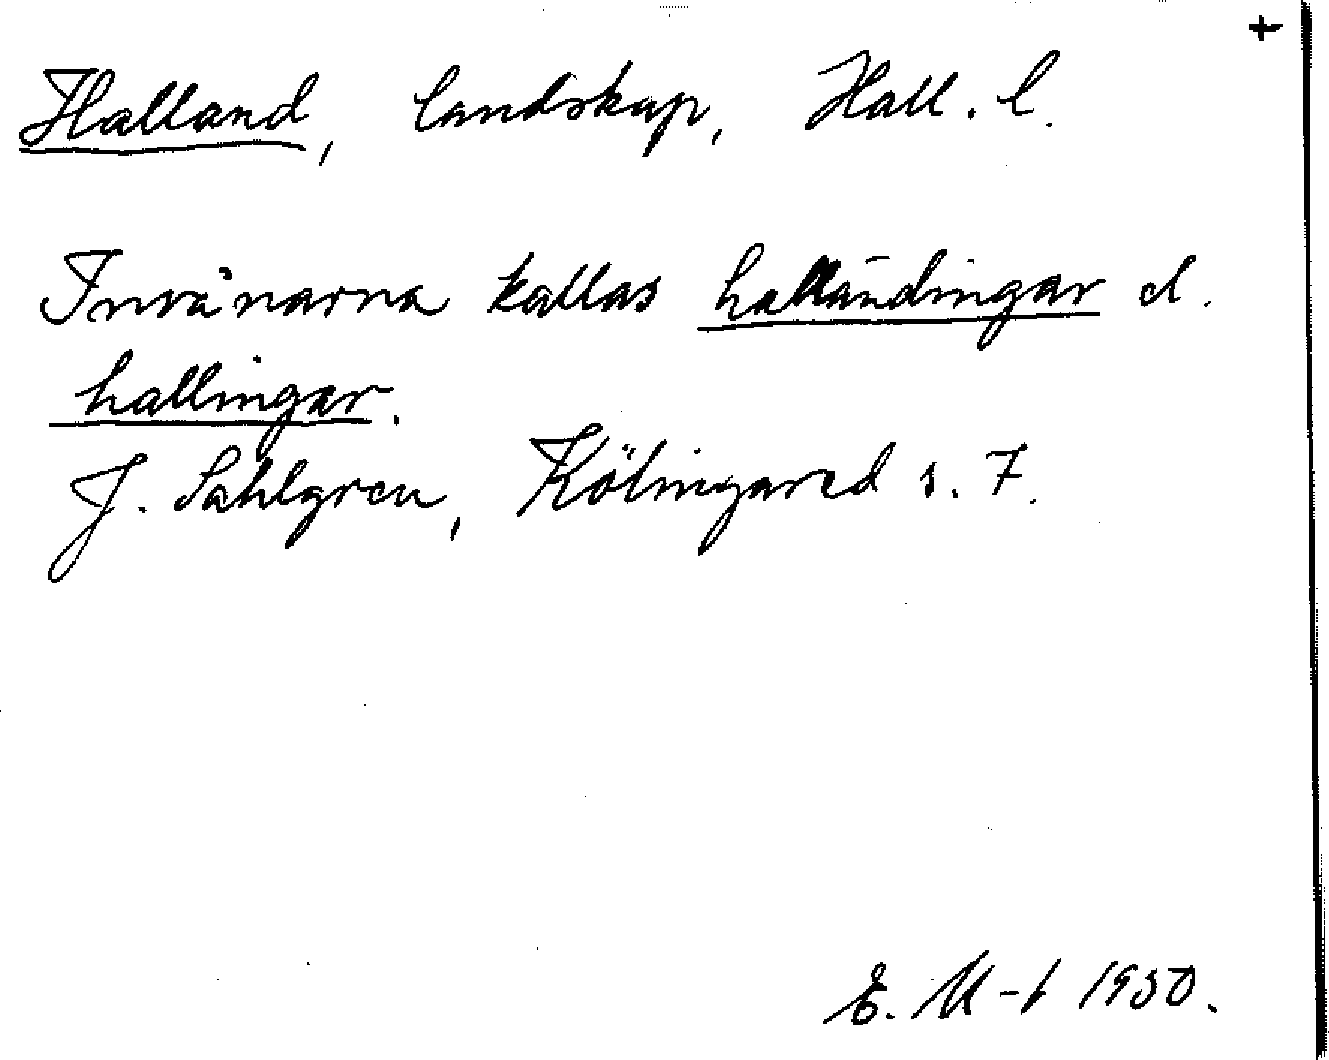 +
Halland, landskap, Hall. l.
Invånarna kallas halländingar el.
hallingar.
J. Sahlgren, Kölingared s. 7.
E. M-t 1930.